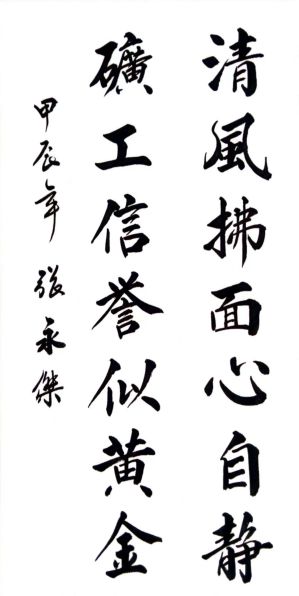 清風拂面心自静
礦工信誉似黄金
甲辰年 張永傑